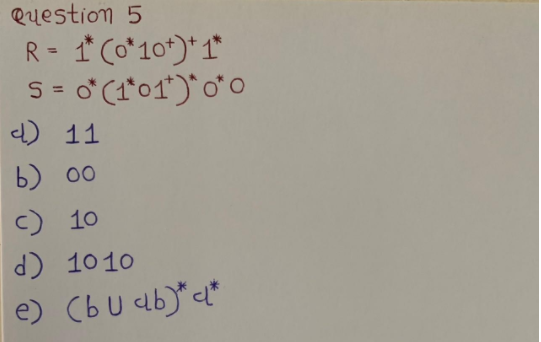 Question 5
R = 1*(0*10⁺)⁺1*
S = 0*(1*01⁺)*0*0
a) 11
b) 00
c) 10
d) 1010
e) (b ∪ ab)*a*